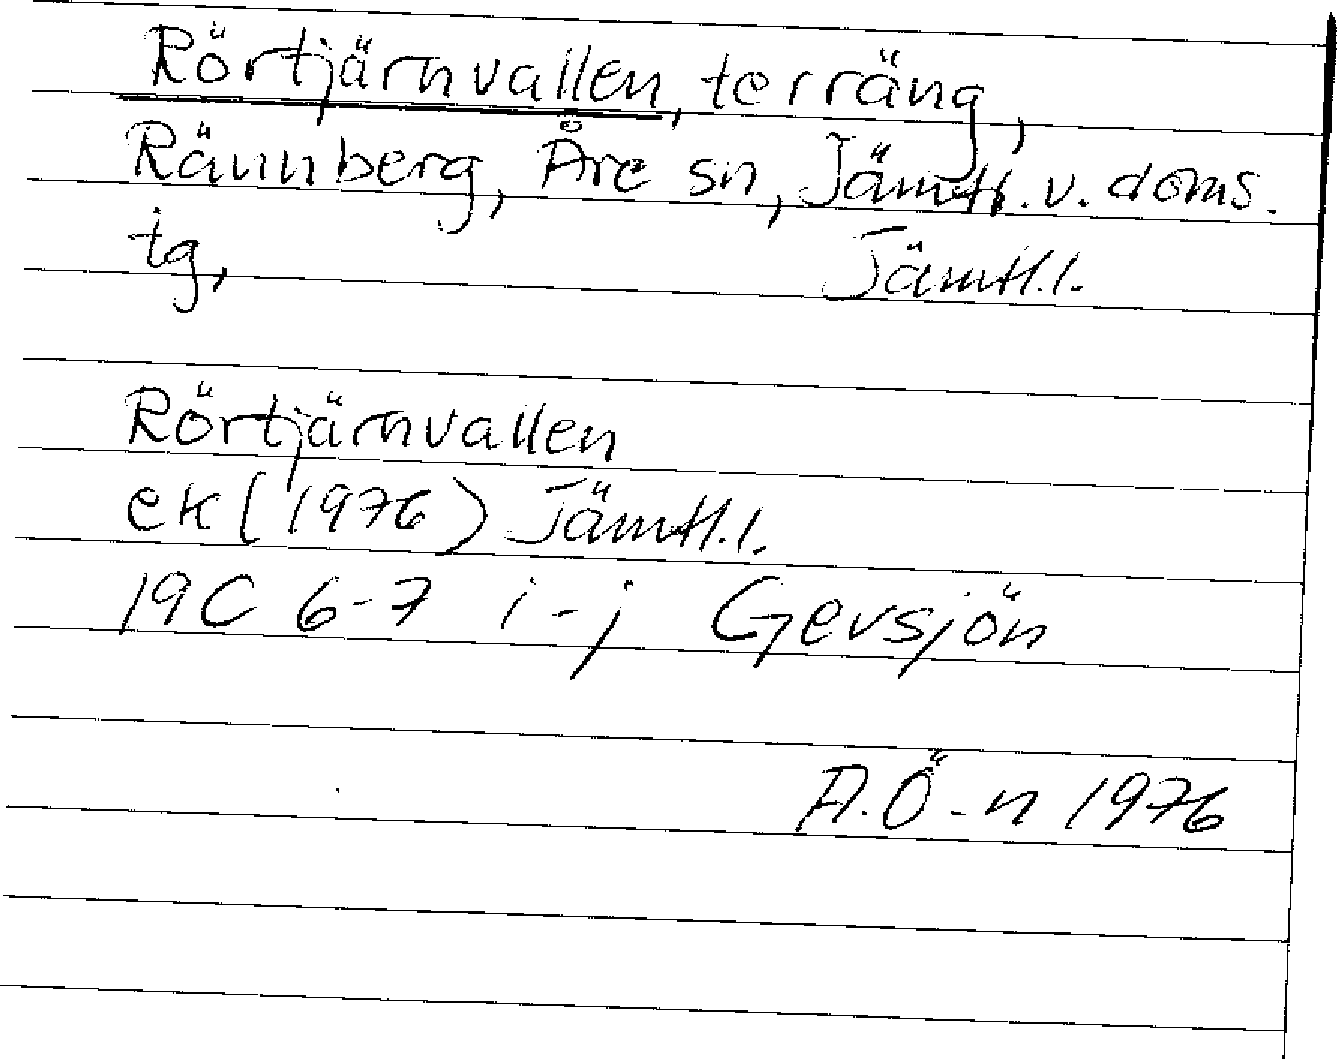 Rörtjärnvallen, terräng,
Rännberg, Åre sn, Jämtl. v. doms.
tg, Jämtl.l.
Rörtjärnvallen
ek (1976) Jämtl.l.
19C 6-7 i-j Gevsjön
A.Ö-n 1976